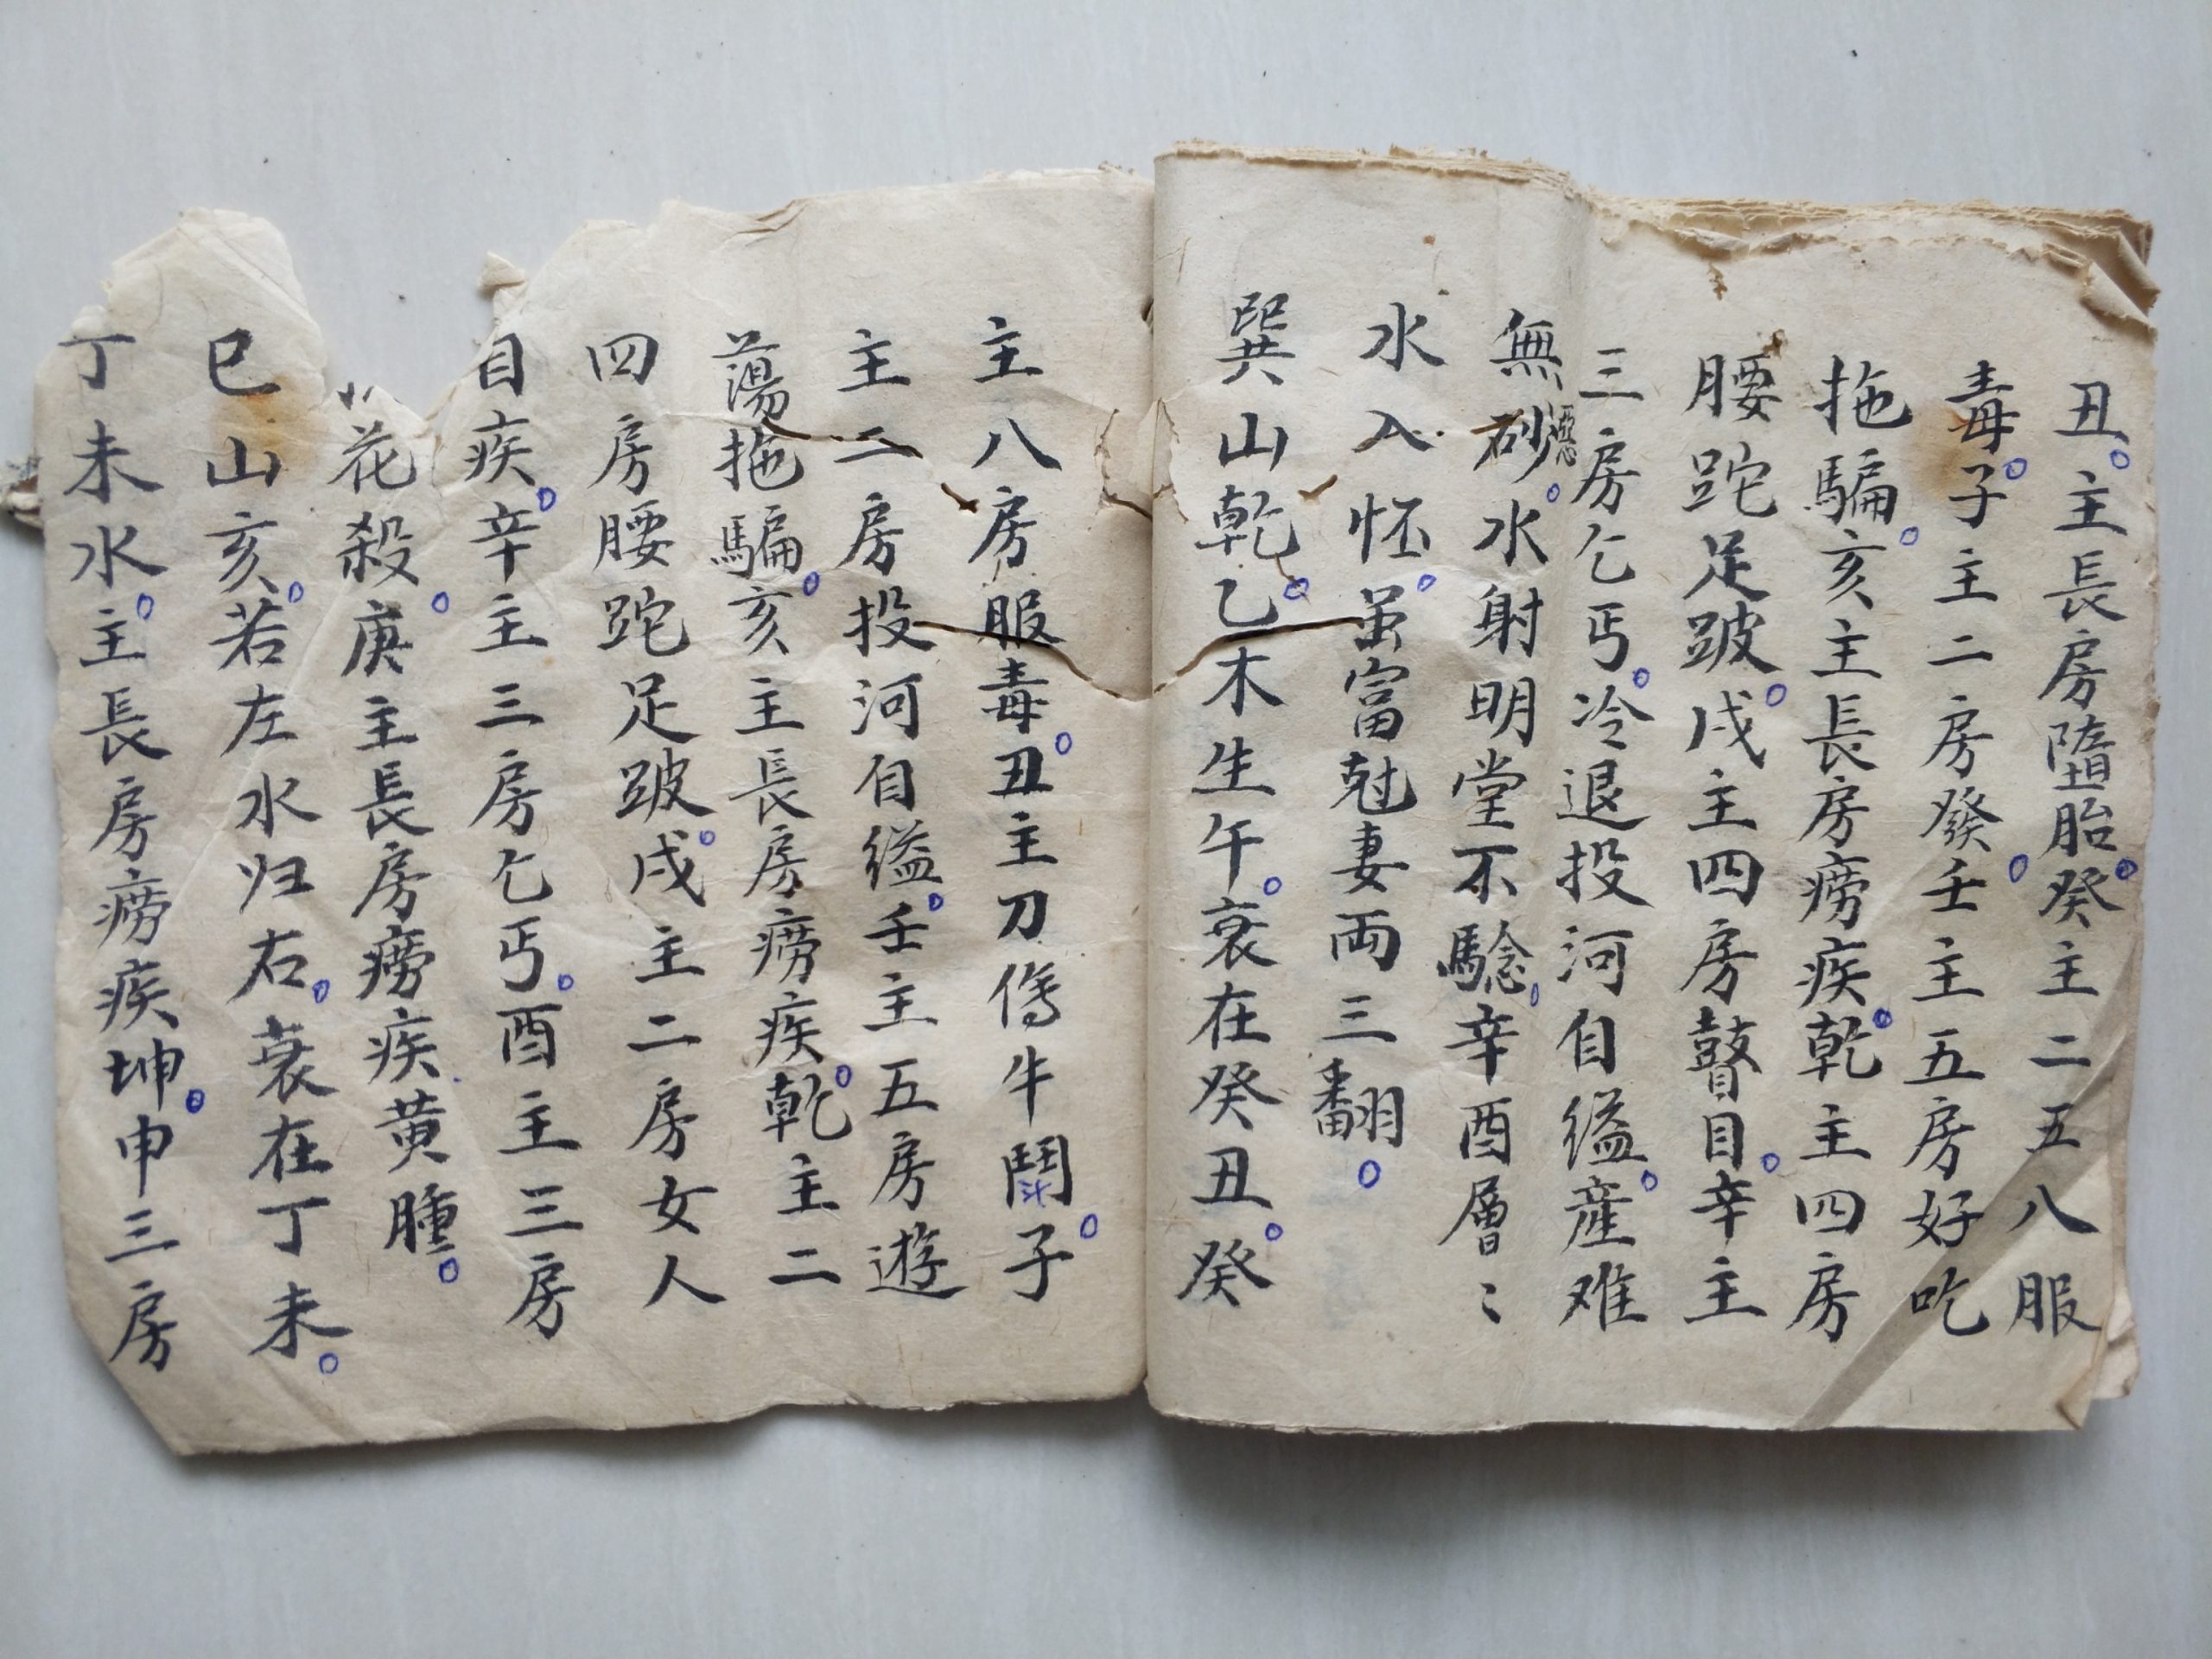 丑。主長房墮胎。癸主二五八服
毒。子主二房發。壬主五房好吃
拖騙。亥主長房癆疾。乾主四房
腰跎足跛。戌主四房瞽目。辛主
三房乞丐。冷退投河自縊。産难
無砂。水射明堂不騐。辛酉層〻
水入怀。虽富尅妻両三翻。
巽山乾。乙木生午。衰在癸丑。癸
主八房服毒。丑主刀傷牛鬪。子
主二房投河自縊。壬主五房遊
蕩拖騙。亥主長房癆疾。乾主二
四房腰跎足跛。戌主二房女人
目疾。辛主三房乞丐。酉主三房
花殺。庚主長房癆疾黄腫。
巳山亥。若左水归右。衰在丁未。
丁未水。主長房癆疾。坤申三房